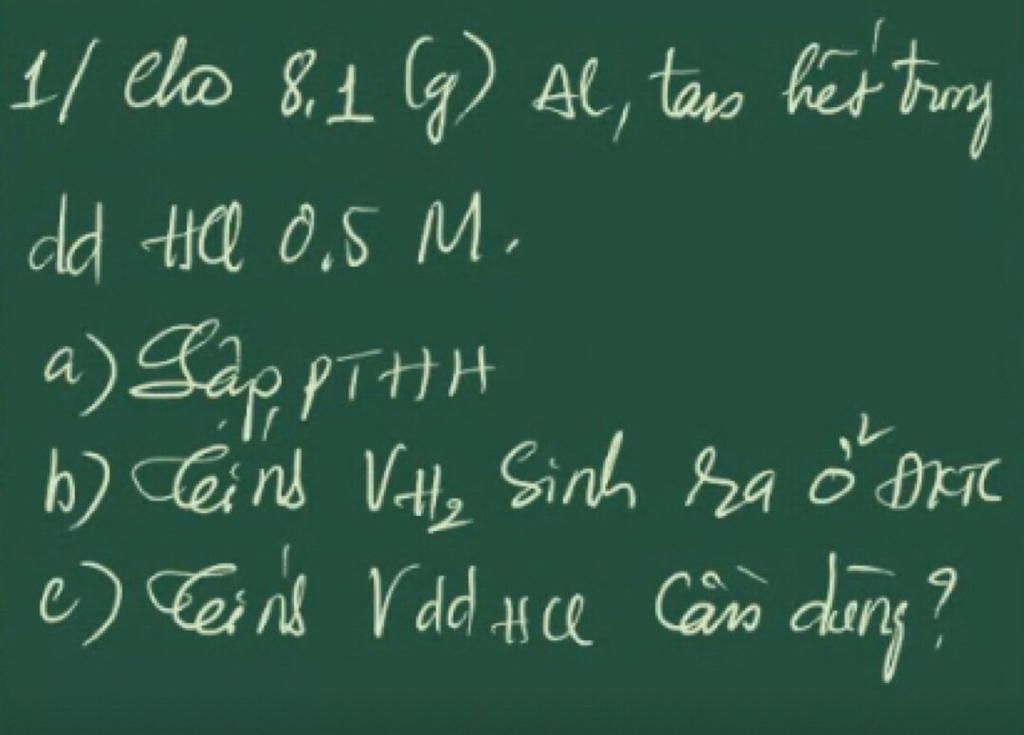 1/ Cho 8.1 (g) Al, tan hết trong
dd HCl 0.5 M.
a) Lập PTHH
b) Tính VH₂ Sinh ra ở ĐKTC
c) Tính Vdd HCl Cần dùng?